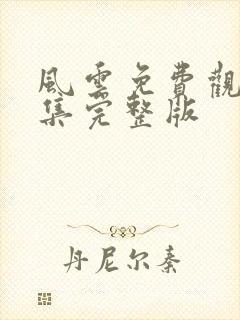 風雲免費觀
集完整版
丹尼尔秦